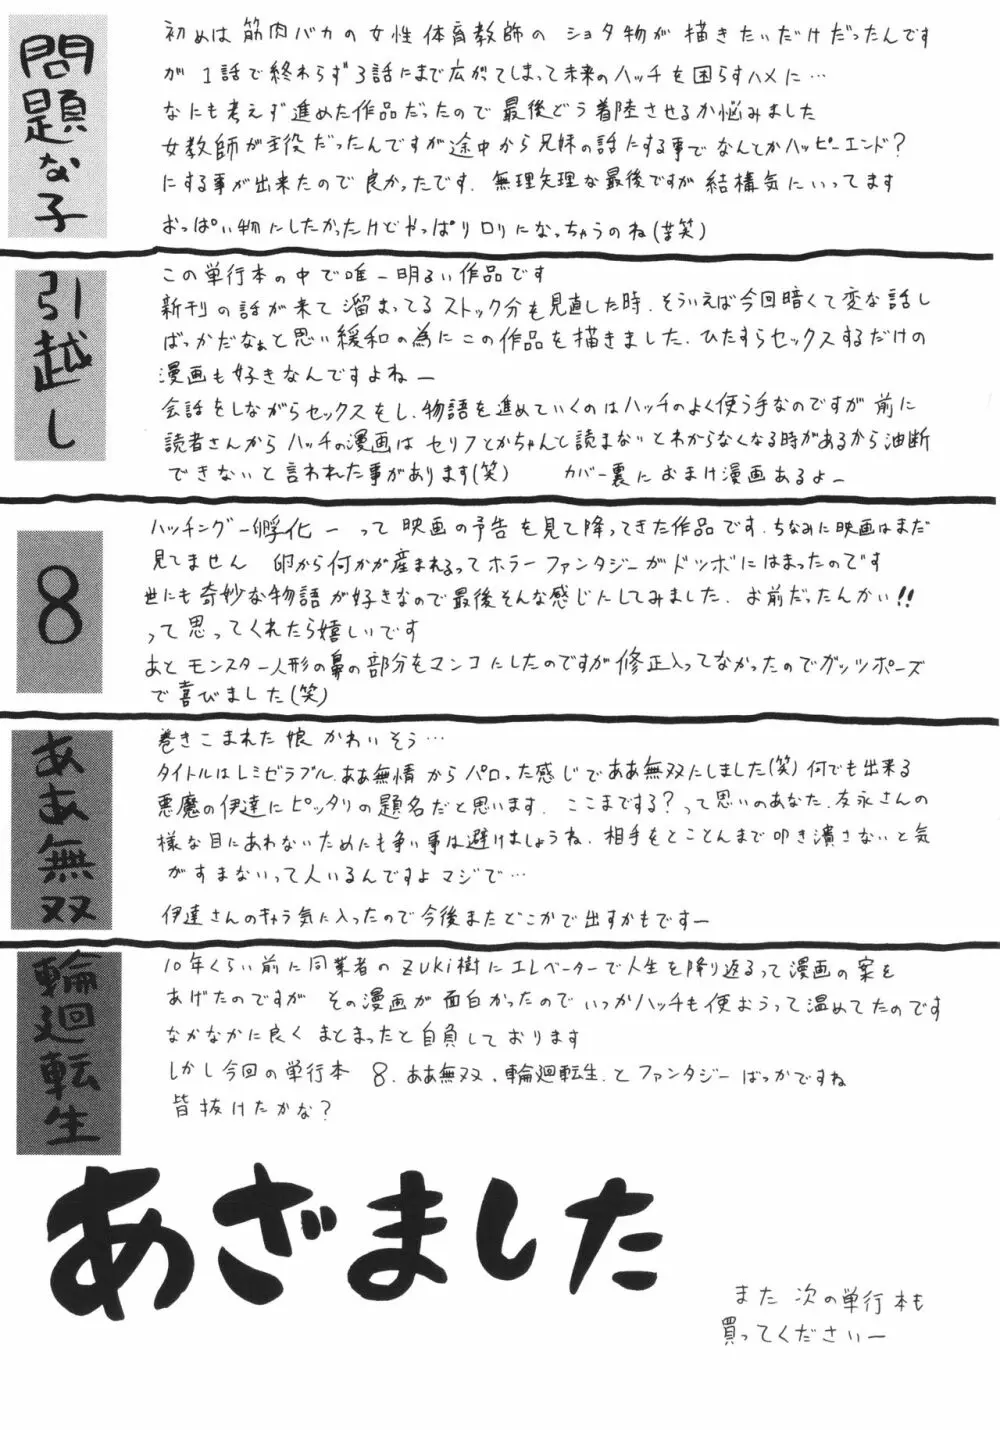 問題な子
初めは筋肉バカの女性体育教師の ショタ物が 描きたいだけだったんです
が 1話で終わらず3話にまで広がてしまって未来のハッチを困らすハメに…
なにも考えず進めた作品だったので最後どう着陸させるか悩みました
女教師が主役だったんですが途中から兄妹の話にする事でなんとかハッピーエンド?
にする事が出来たので良かったです. 無理矢理な最後ですが結構気にいってます
おっぱい物にしたかったけどやっぱりロリになっちゃうのね(苦笑)
引越し
この単行本の中で唯一明るい作品です
新刊の話が来て溜まってるストック分も見直した時、そういえば今回暗くて変な話し
ばっかだなぁと思い緩和の為にこの作品を描きました. ひたすらセックスするだけの
漫画も好きなんですよねー
会話をしながらセックスをし、物語を進めていくのはハッチのよく使う手なのですが前に
読者さんから ハッチの漫画は セリフとかちゃんと読まないとわからなくなる時があるから油断
できないと言われた事があります(笑) カバー裏におまけ漫画あるよー
8
ハッチングー孵化ー って映画の予告を見て降ってきた作品です. ちなみに映画はまだ
見てません 卵から何かが産まれるってホラーファンタジーがドツボにはまったのです
世にも奇妙な物語が好きなので最後そんな感じにしてみました. お前だったんかい!!
って思ってくれたら嬉しいです
あと モンスター人形の鼻の部分をマンコにしたのですが修正入ってなかったのでガッツポーズ
で喜びました(笑)
ああ無双
巻きこまれた娘かわいそう…
タイトルはレミゼラブル、ああ無情からパロった感じでああ無双にしました(笑)何でも出来る
悪魔の伊達にピッタリの題名だと思います. ここまでする?って思いのあなた、友永さんの
様な目にあわないためにも争い事は避けましょうね、相手をとことんまで叩き潰さないと気
がすまないって人いるんですよマジで…
伊達さんのキャラ気に入ったので今後またどこかで出すかもですー
輪廻転生
10年くらい前に同業者のZUKI樹にエレベーターで人生を降り返るって漫画の案を
あげたのですが その漫画が面白かったのでいつかハッチも使おうって温めてたのです
なかなかに良く まとまったと自負しております
しかし今回の単行本 8、ああ無双、輪廻転生、とファンタジーばっかですね
皆抜けたかな?
あざました
また 次の単行本も
買ってくださいー